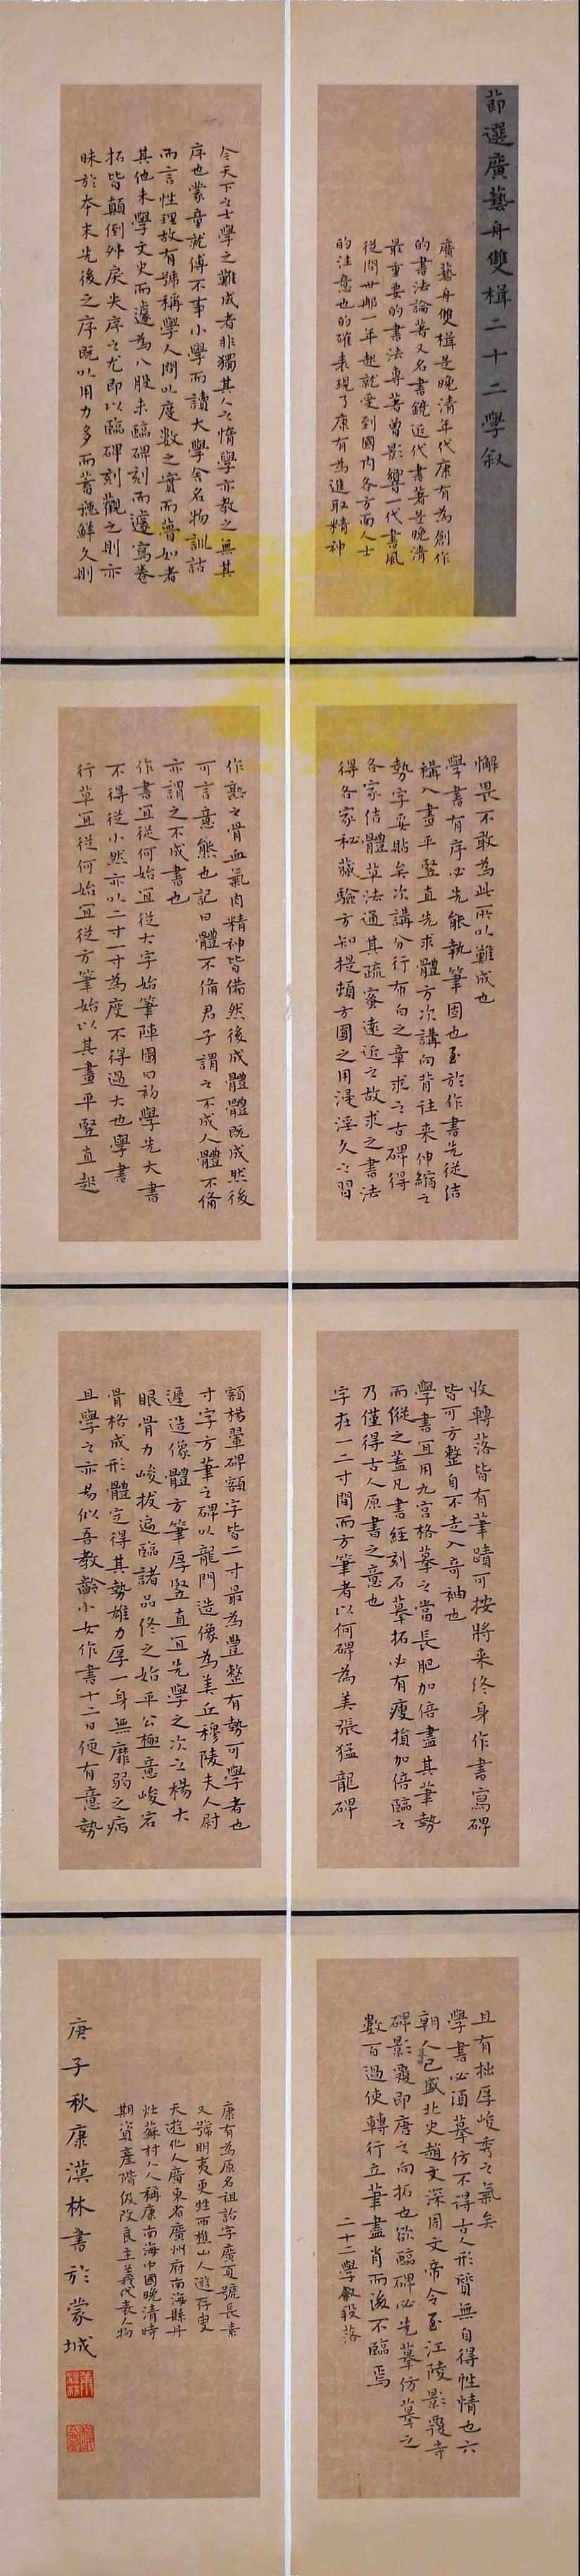 節選廣藝舟雙楫二十二學叙
廣藝舟雙楫是晚清年代康有為創作
的書法論著又名書鏡近代書著是晚清
最重要的書法專著曾影響一代書風
從問世那一年起就受到國内各方面人士
的注意也的確表現了康有為進取精神
今天下之士學之難成者非獨其人之惰學亦教之無其
序也蒙童就傅不事小學而讀大學舍名物訓詁
而言性理故有號稱學人問以度數之實而瞢如者
其他未學文史而遽為八股未臨碑刻而遽寫卷
拓皆顛倒舛戾失序之尤即以臨碑刻觀之則亦
昧於本末先後之序既以用力多而蓄疑鮮久則
懈畏不敢為此所以難成也
學書有序必先能執筆固也至於作書先從結
構入畫平豎直先求體方次講向背往来伸縮之
勢字妥貼矣次講分行布白之章求之古碑得
各家結體草法通其疏密遠近之故求之書法
得各家秘藏驗方知提頓方圓之用浸淫久之習
作熟之骨血氣肉精神皆備然後成體體既成然後
可言意態也記曰體不備君子謂之不成人體不備
亦謂之不成書也
作書宜從何始宜從大字始筆陣圖曰初學先大書
不得從小然亦以二寸一寸為度不得過大也學書
行草宜從何始宜從方筆始以其畫平豎直起
收轉落皆有筆蹟可按將来終身作書寫碑
皆可方整自不走入奇袖也
學書宜用九宫格摹之當長肥加倍盡其筆勢
而縱之蓋凡書經刻石摹拓必有瘦損加倍臨之
乃僅得古人原書之意也
字在一二寸間而方筆者以何碑為美張猛龍碑
額楊翬碑額字皆二寸最為豊整有勢可學者也
寸字方筆之碑以龍門造像為美丘穆陵夫人尉
遲造像體方筆厚豎直宜先學之次之楊大
眼骨力峻拔遍臨諸品終之始平公極意峻宕
骨格成形體定得其勢雄力厚一身無靡弱之病
且學之亦易似吾教齡小女作書十二日便有意勢
且有拙厚峻秀之氣矣
學書必須摹仿不得古人形質無自得性情也六
朝人已盛北史趙文深周文帝令至江陵影覆寺
碑影覆即唐之向拓也欲臨碑必先摹仿摹之
數百過使轉行立筆盡肖而後不臨焉
二十二學敘段落
康有為原名祖詒字廣夏號長素
又號明夷更甡西樵山人遊存叟
天遊化人廣東省廣州府南海縣丹
灶蘇村人人稱康南海中國晚清時
期資產階級改良主義代表人物
庚子秋康漢林書於蒙城